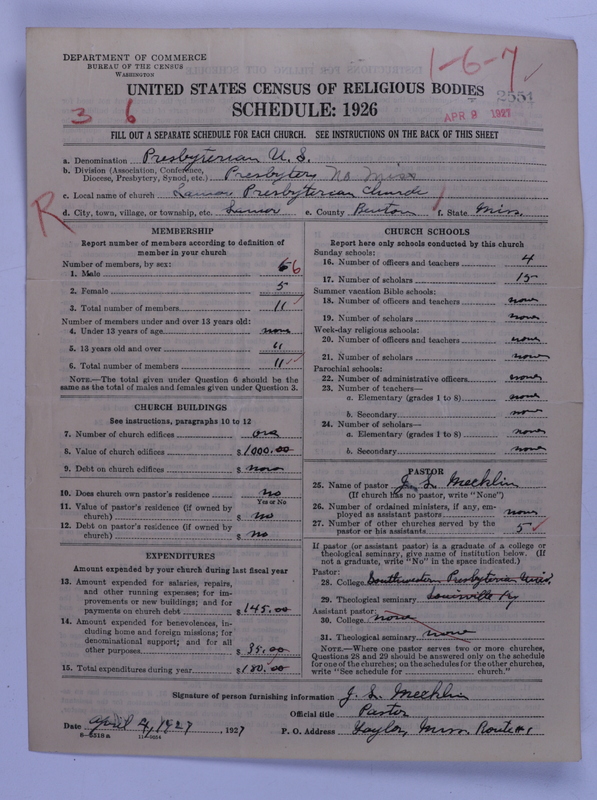 DEPARTMENT OF COMMERCE
BUREAU OF THE CENSUS
WASHINGTON
1-6-7
UNITED STATES CENSUS OF RELIGIOUS BODIES
SCHEDULE: 1926
3 6
2551
APR 9 1927
FILL OUT A SEPARATE SCHEDULE FOR EACH CHURCH. SEE INSTRUCTIONS ON THE BACK OF THIS SHEET
R
a. Denomination Presbyterian U. S.
b. Division (Association, Conference, Diocese, Presbytery, Synod, etc.) Presbytery No Miss
c. Local name of church Lamar Presbyterian Church
d. City, town, village, or township, etc. Lamar e. County Benton f. State Miss.
MEMBERSHIP
Report number of members according to definition of
member in your church
Number of members, by sex:
1. Male 6 6
2. Female 5
3. Total number of members 11
Number of members under and over 13 years old:
4. Under 13 years of age none
5. 13 years old and over 11
6. Total number of members 11
NOTE.—The total given under Question 6 should be the
same as the total of males and females given under Question 3.
CHURCH BUILDINGS
See instructions, paragraphs 10 to 12
7. Number of church edifices one
8. Value of church edifices $ 1000.00
9. Debt on church edifices $ none
10. Does church own pastor's residence no
Yes or No
11. Value of pastor's residence (if owned by
church) $ no
12. Debt on pastor's residence (if owned by
church) $ no
EXPENDITURES
Amount expended by your church during last fiscal year
13. Amount expended for salaries, repairs,
and other running expenses; for im-
provements or new buildings; and for
payments on church debt $ 145.00
14. Amount expended for benevolences, in-
cluding home and foreign missions; for
denominational support; and for all
other purposes $ 35.00
15. Total expenditures during year $ 180.00
CHURCH SCHOOLS
Report here only schools conducted by this church
Sunday schools:
16. Number of officers and teachers 4
17. Number of scholars 15
Summer vacation Bible schools:
18. Number of officers and teachers none
19. Number of scholars none
Week-day religious schools:
20. Number of officers and teachers none
21. Number of scholars none
Parochial schools:
22. Number of administrative officers none
23. Number of teachers—
a. Elementary (grades 1 to 8) none
b. Secondary none
24. Number of scholars—
a. Elementary (grades 1 to 8) none
b. Secondary none
PASTOR
25. Name of pastor J. S. Mecklin
(If church has no pastor, write "None")
26. Number of ordained ministers, if any, em-
ployed as assistant pastors none
27. Number of other churches served by the
pastor or his assistants 5
If pastor (or assistant pastor) is a graduate of a college or
theological seminary, give name of institution below. (If
not a graduate, write "No" in the space indicated.)
Pastor:
28. College Southwestern Presbyterian Univ.
29. Theological seminary Louisville Ky
Assistant pastor:
30. College none
31. Theological seminary none
NOTE.—Where one pastor serves two or more churches,
Questions 28 and 29 should be answered only on the schedule
for one of the churches; on the schedules for the other churches,
write "See schedule for church."
Signature of person furnishing information J. S. Mecklin
Official title Pastor
Date april 2, 1927, 1927 P. O. Address Taylor, Miss. Route #1
8-5318a 11-9024